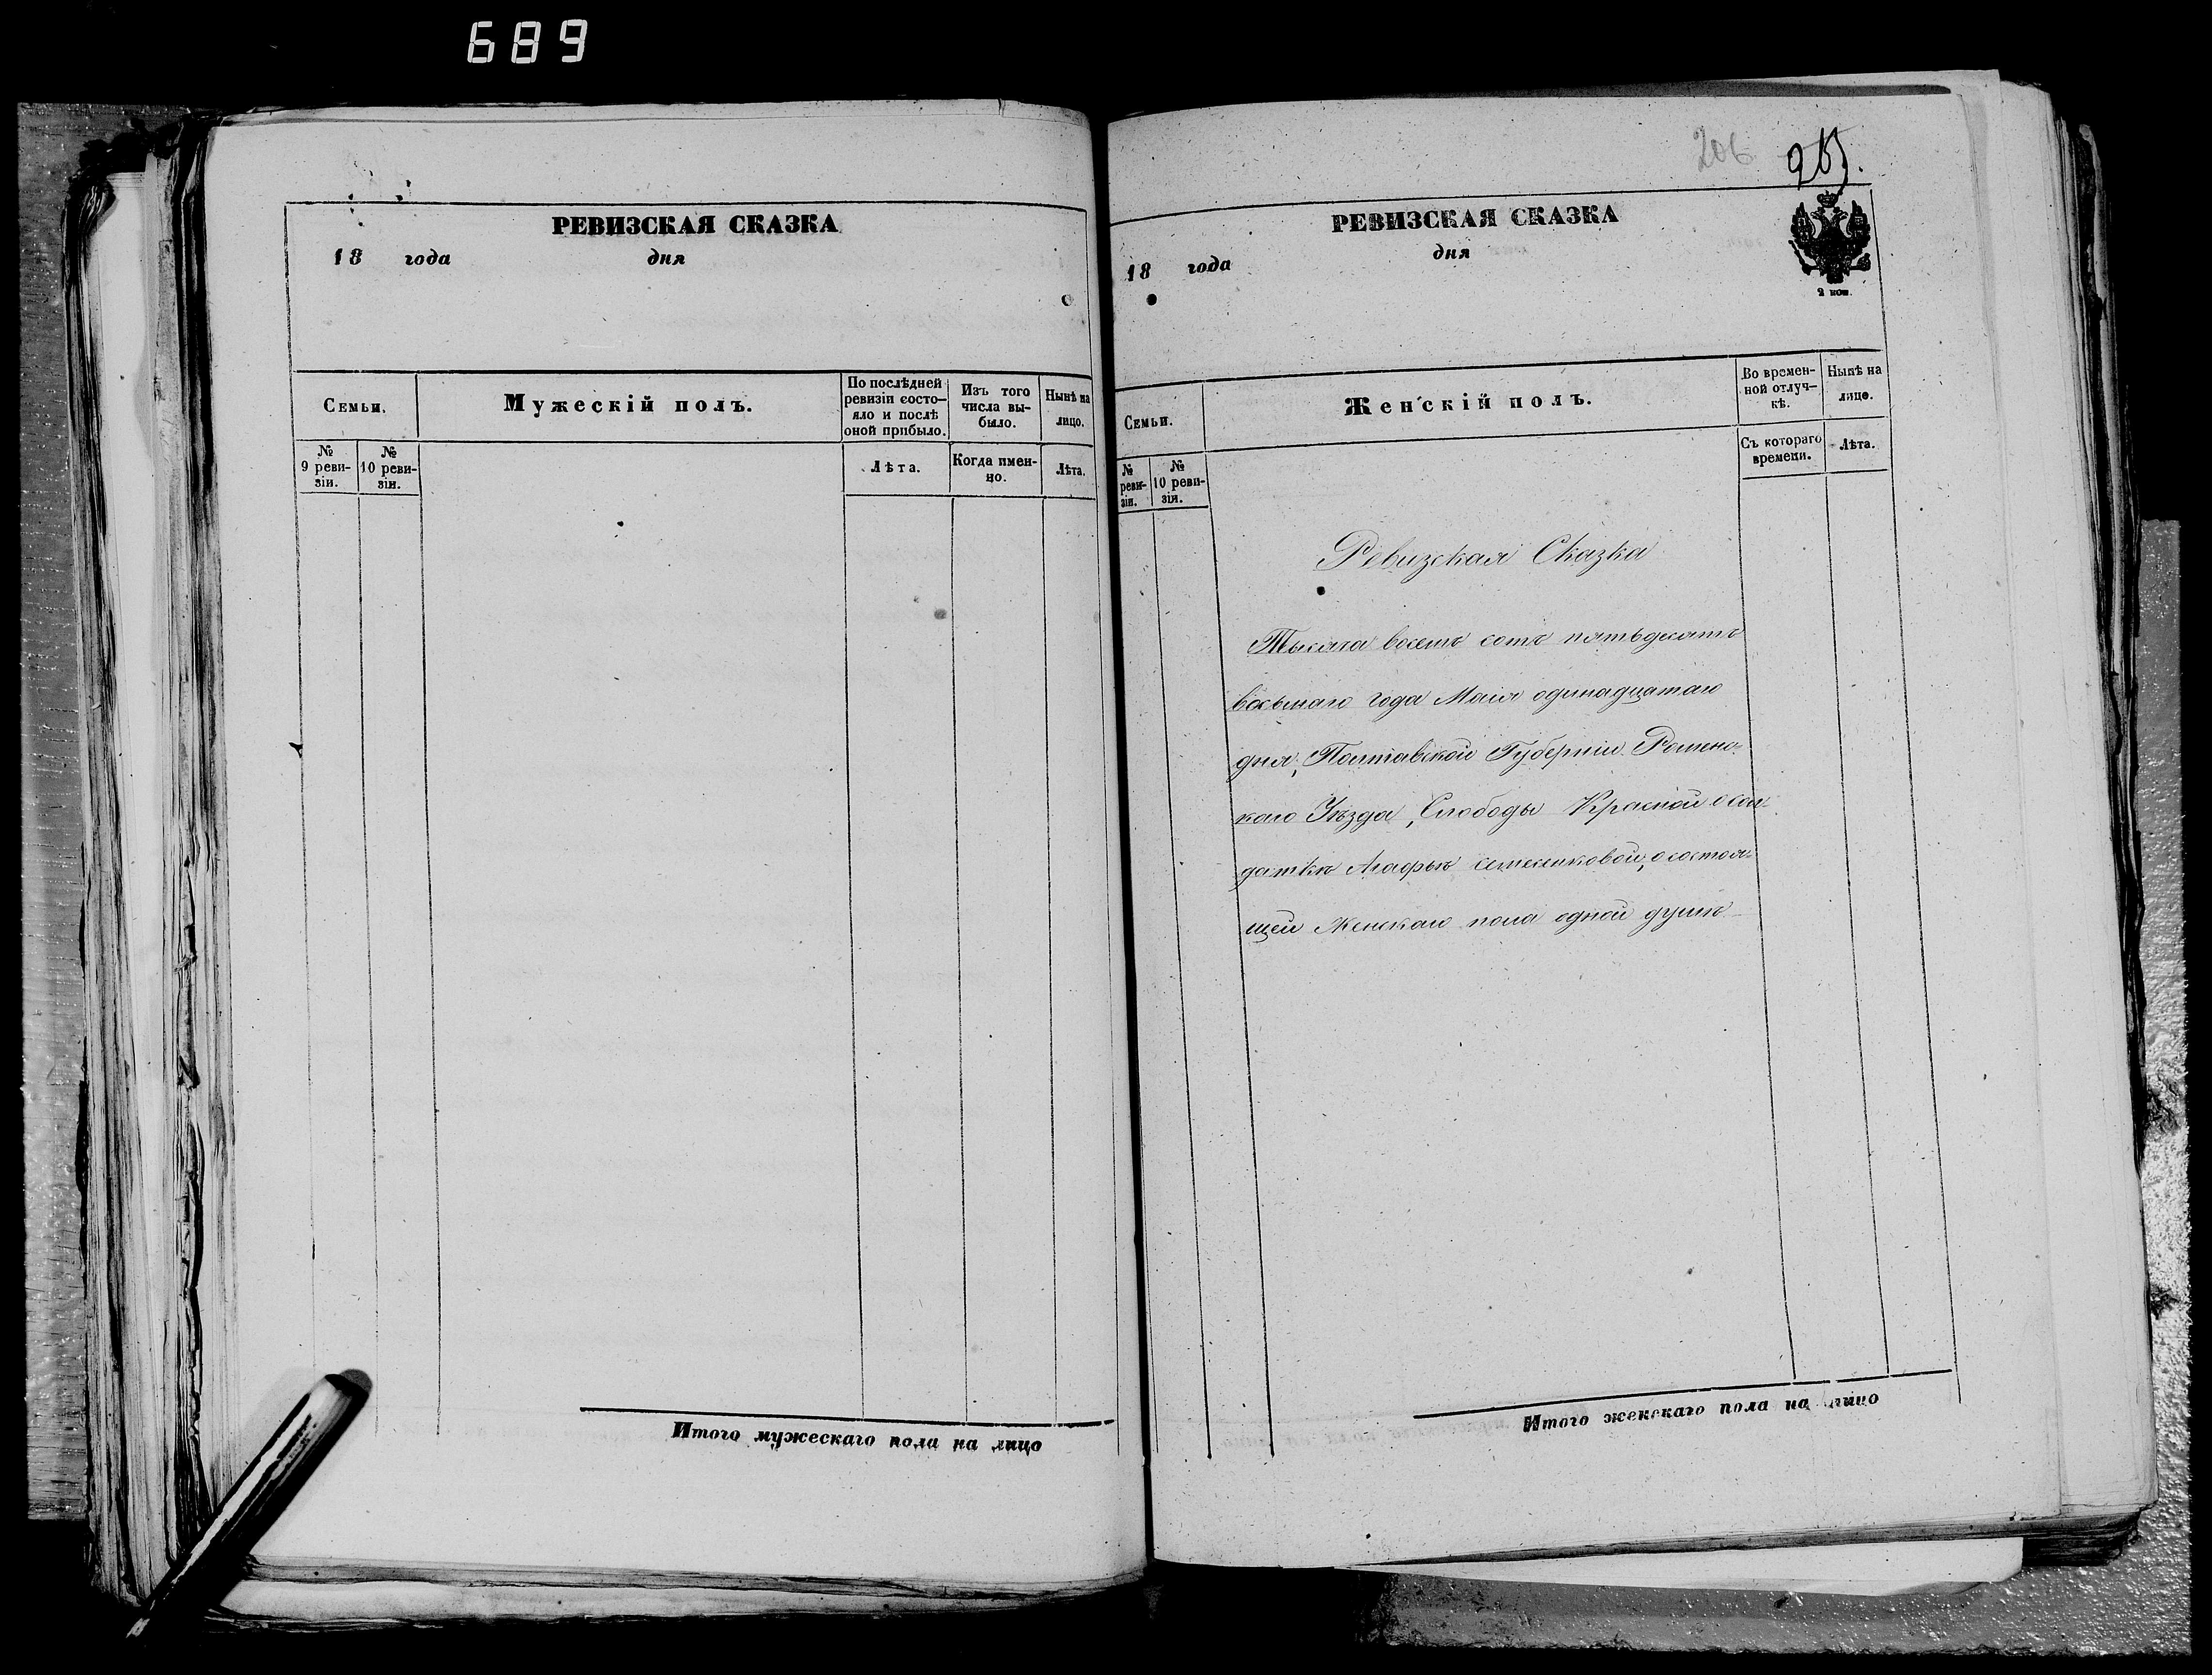 689
РЕВИЗСКАЯ СКАЗКА
18 года дня
Семьи.
Мужескій полъ.
По послѣдней
ревизіи состо-
яло и послѣ
оной прибыло.
Изъ того
числа вы-
было.
Нынѣ на
лицо.
№
9 реви-
зіи.
№
10 реви-
зіи.
Лѣта.
Когда имен-
но.
Лѣта.
Итого мужескаго пола на лицо
206
РЕВИЗСКАЯ СКАЗКА
18 года дня
2 коп.
Семьи.
Женскій полъ.
Во времен-
ной отлуч-
кѣ.
Нынѣ на
лице.
№
реви-
зіи.
№
10 реви-
зіи.
Съ котораго
времени.
Лѣта.
Ревизская Сказка
Тысяча восемъ сотъ пятьдесятъ
восьмаго года Маія одинадцатаго
дня, Полтавской Губерніи Роменс-
каго Уѣзда, Слободы Красной о сол-
даткѣ Агафьѣ Семененковой, о состоя-
щей Женскаго пола одной душѣ
Итого женскаго пола на лицо